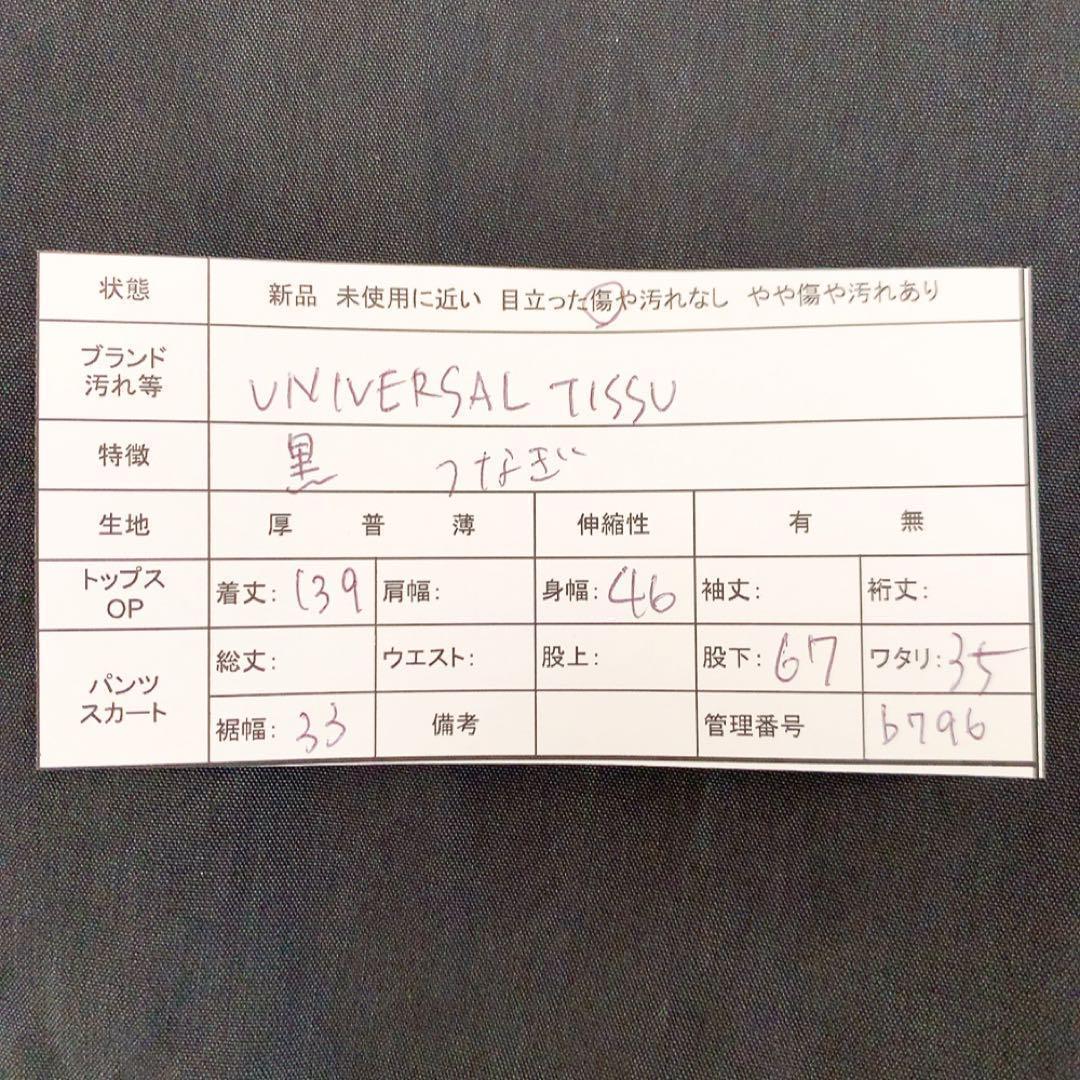 状態 新品 未使用に近い 目立った傷や汚れなし やや傷や汚れあり
ブランド
汚れ等 UNIVERSAL TISSU
特徴 黒 つなぎ
生地 厚 普 薄 伸縮性 有 無
トップス
OP 着丈: 139 肩幅: 身幅: 46 袖丈: 裄丈:
パンツ
スカート 総丈: ウエスト: 股上: 股下: 67 ワタリ: 35
裾幅: 33 備考 管理番号 b796